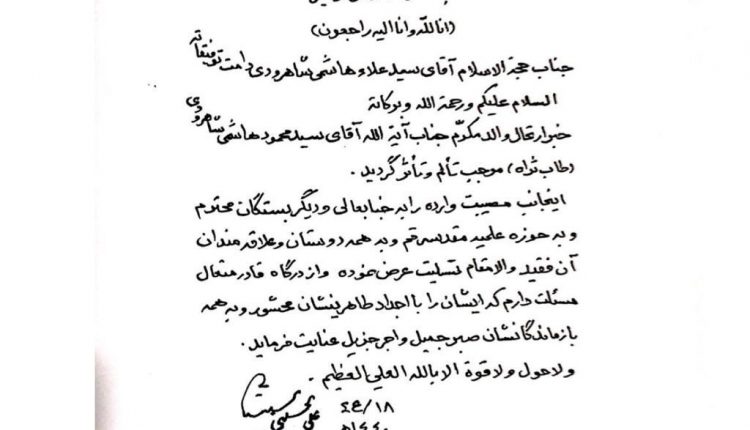 (انا لله وانا الیه راجعون)
جناب حجة الاسلام آقای سید علاء هاشمی شاهرودی دامت توفیقاته
السلام علیکم ورحمة الله وبرکاته
خبر ارتحال والد مکرّم جناب آیة الله آقای سید محمود هاشمی شاهرودی
(طاب ثراه) موجب تألم وتأثر گردید .
اینجانب مصیبت وارده را به جنابعالی ودیگر بستگان محترم
و به حوزه علمیه مقدسه قم و به همه دوستان وعلاقه مندان
آن فقید والامقام تسلیت عرض نموده واز درگاه قادر متعال
مسئلت دارم که ایشان را با اجداد طاهرینشان محشور وبه همه
بازماندگانشان صبر جمیل واجر جزیل عنایت فرماید .
ولا حول ولا قوة الا بالله العلي العظیم .
١٨/ع٢
علي الحسيني السيستاني